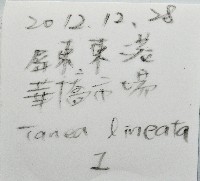 2012.12.28
屏東東港
華僑市場
Tanea lineata
1